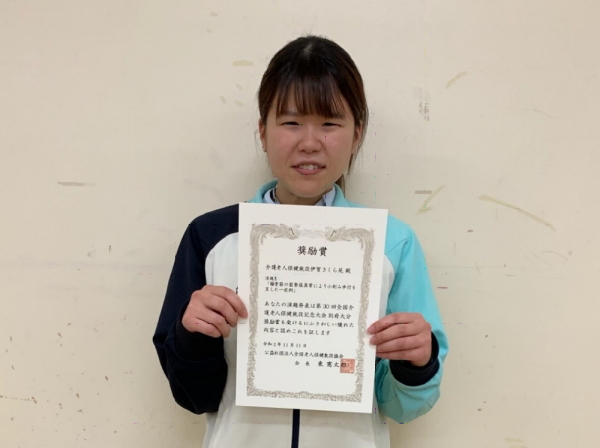 奨励賞
介護老人保健施設伊賀さくら苑 殿
演題名
あなたの演題発表は第30回全国介
護老人保健施設記念大会 別府大分
奨励賞を受けるにふさわしい優れた
内容と認めこれを証します
令和元年11月11日
公益社団法人全国老人保健施設協会
会 長 東 憲太郎